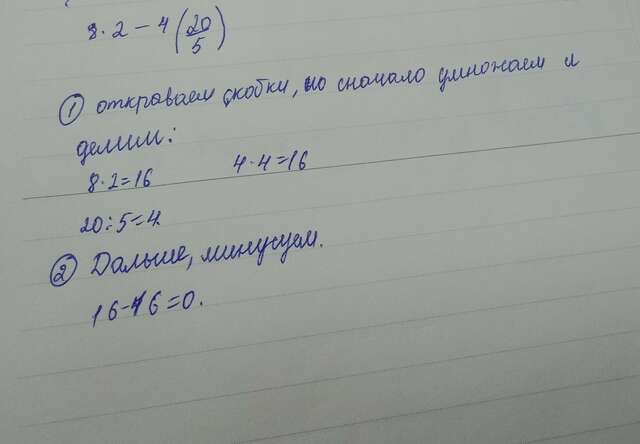 8·2-4(20/5)
① откраваем скобки, но сначало умножаем и
делим:
8·2=16 4·4=16
20:5=4
② Дальше, минусуем.
16-16=0.